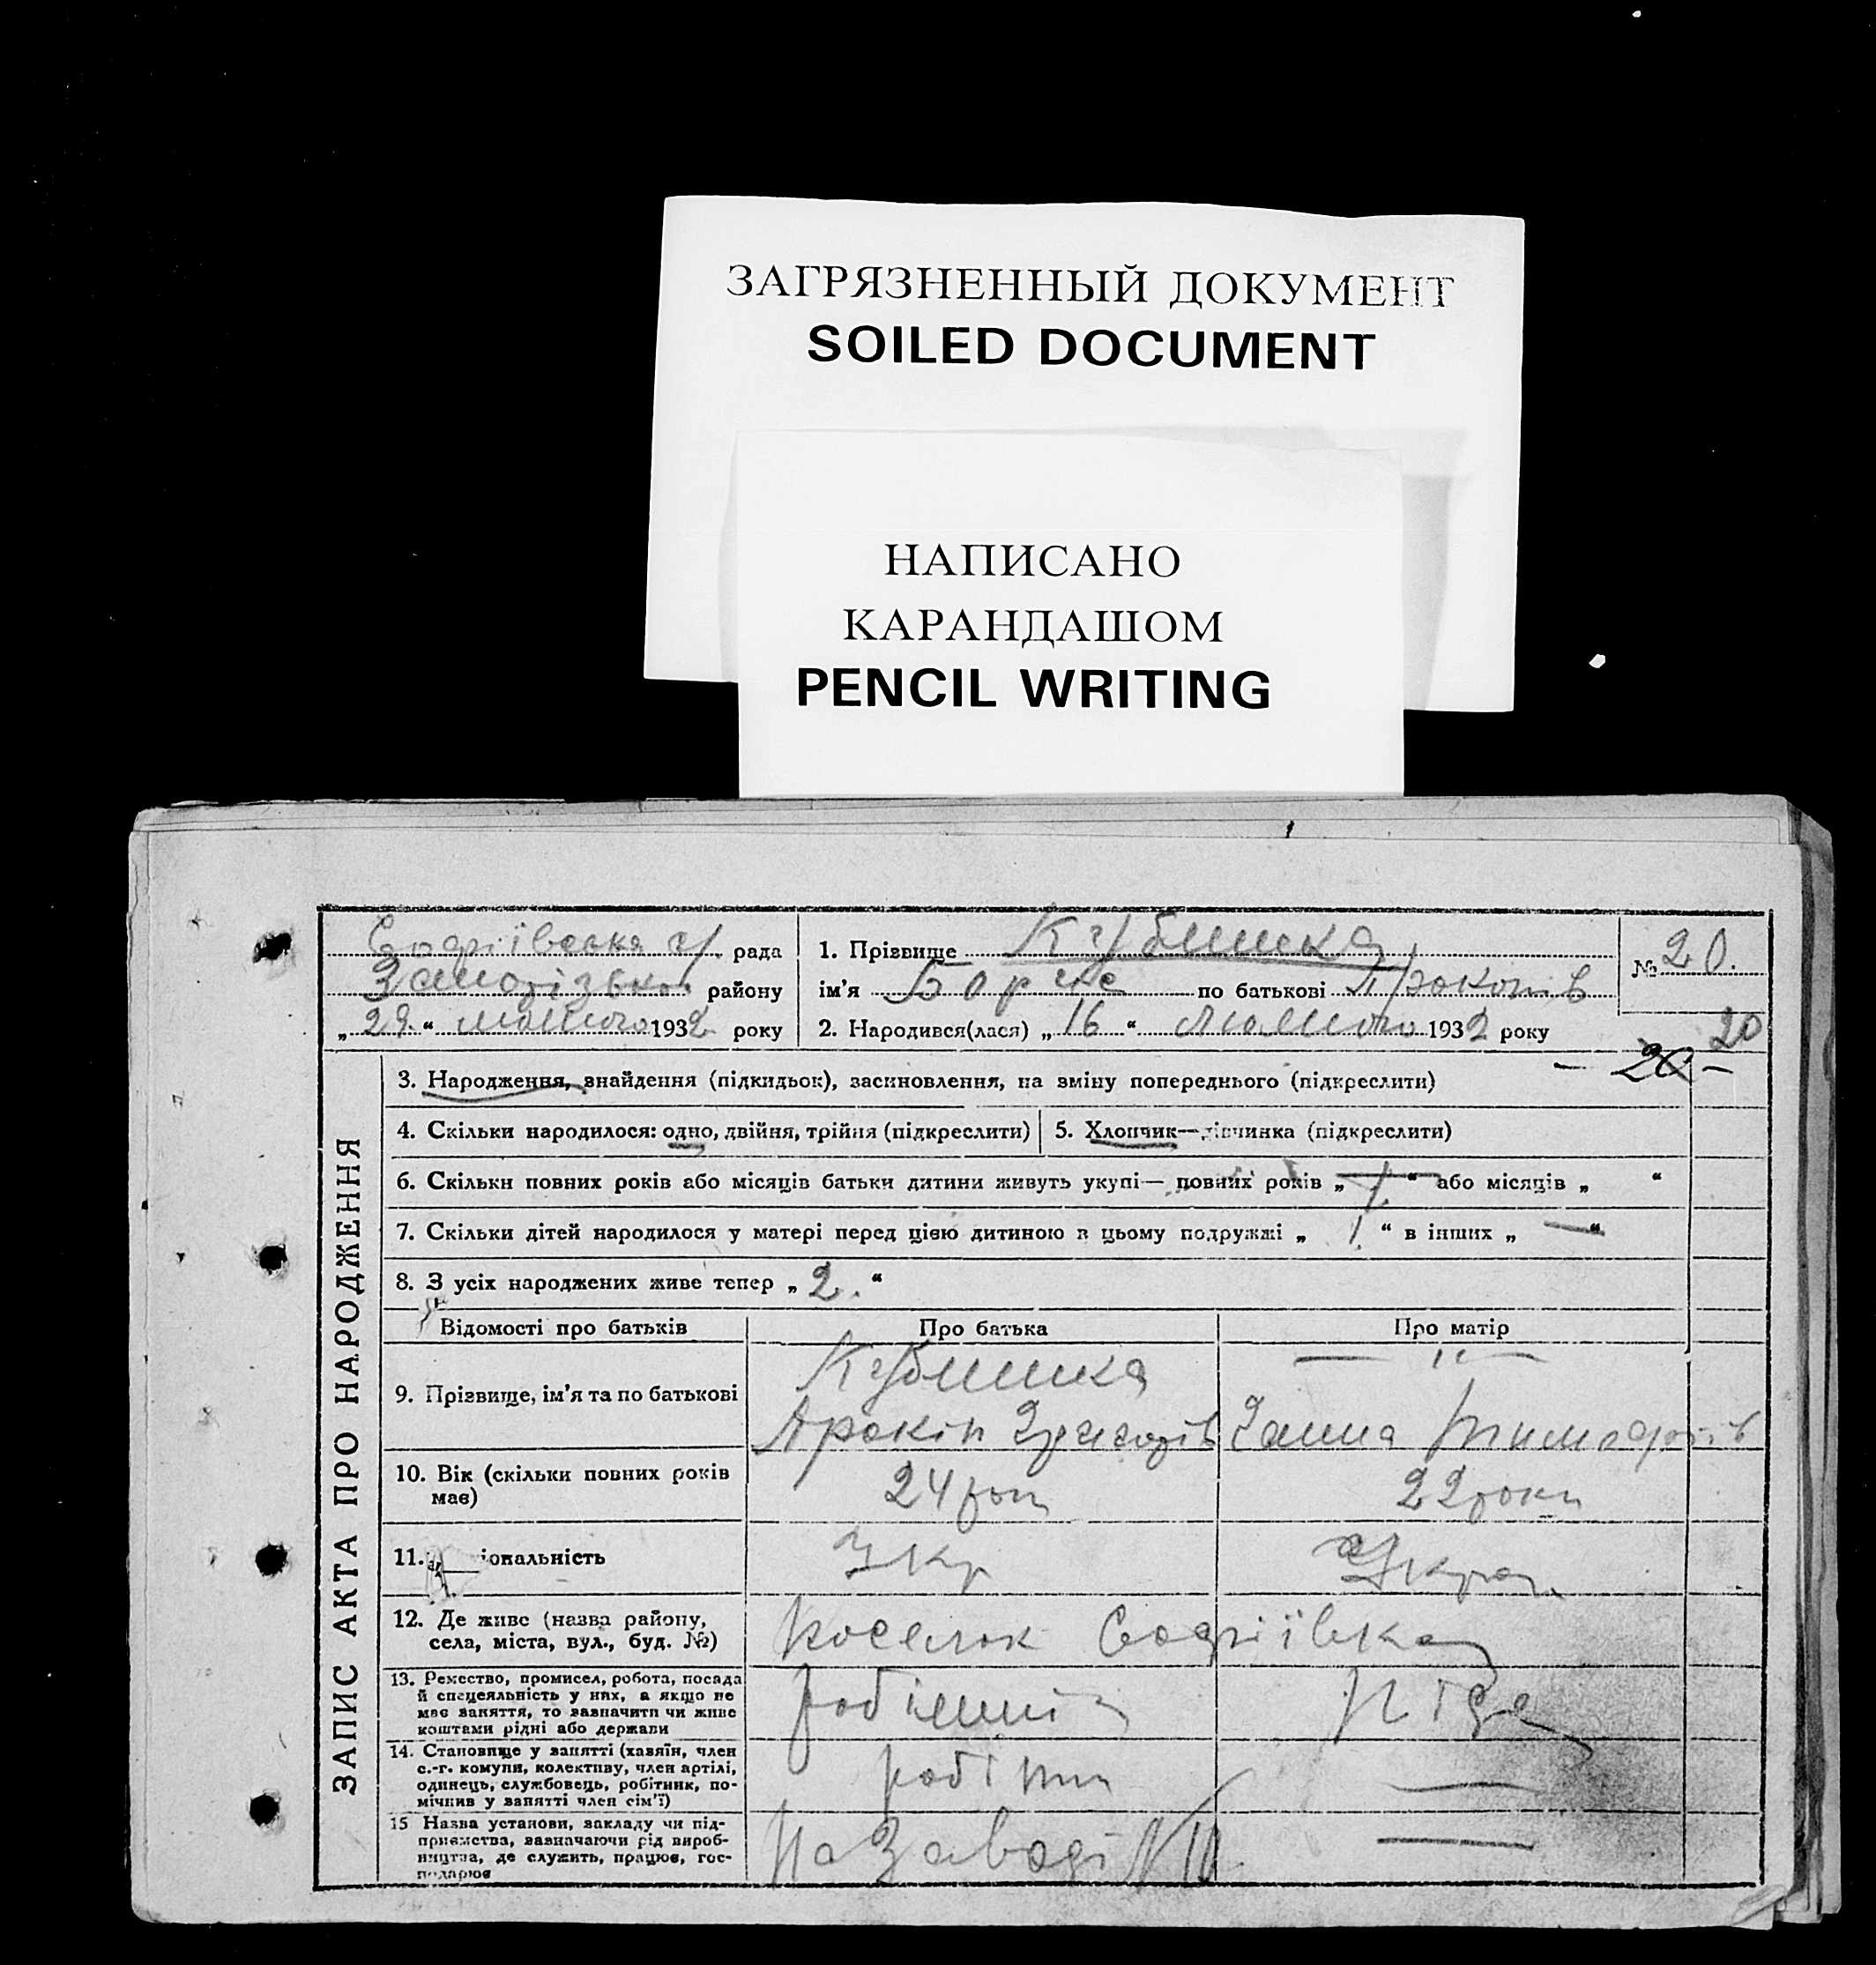 ЗАГРЯЗНЕННЫЙ ДОКУМЕНТ
SOILED DOCUMENT
НАПИСАНО
КАРАНДАШОМ
PENCIL WRITING
Софіївська с/рада
району
„29“ лютого 1932 року
1. Прізвище Кубишка
ім'я Борис по батькові Прокопів
2. Народився(лася) „16“ лютого 1932 року
№ 20.
20
– 20 –
ЗАПИС АКТА ПРО НАРОДЖЕННЯ
3. Народження, знайдення (підкидьок), засиновлення, на зміну попереднього (підкреслити)
4. Скільки народилося: одно, двійня, трійня (підкреслити)
5. Хлопчик—дівчинка (підкреслити)
6. Скільки повних років або місяців батьки дитини живуть укупі— повних років „ “ або місяців „ “
7. Скільки дітей народилося у матері перед цією дитиною в цьому подружжі „1.“ в інших „—“
8. З усіх народжених живе тепер „2.“
Відомості про батьків
Про батька
Про матір
9. Прізвище, ім'я та по батькові
Кубишка
— " —
Прокіп Григорів
Ганна Тимофіїв
10. Вік (скільки повних років
має)
24 рок
22 роки
11. іональність
Укр
Укра
12. Де живе (назва району,
села, міста, вул., буд. №)
поселок Софіївка
13. Ремество, промисел, робота, посада
й спецеяльність у них, а якщо не
має заняття, то зазначити чи живе
коштами рідні або держави
робітник
14. Становище у занятті (хазяїн, член
с.-г. комуни, колективу, член артілі,
одинець, службовець, робітник, по-
мічник у занятті член сім'ї)
робітн
—
15 Назва установи, закладу чи під-
приємства, зазначаючи рід вироб-
ництва, де служить, працює, гос-
подарює
На Заводі №
—